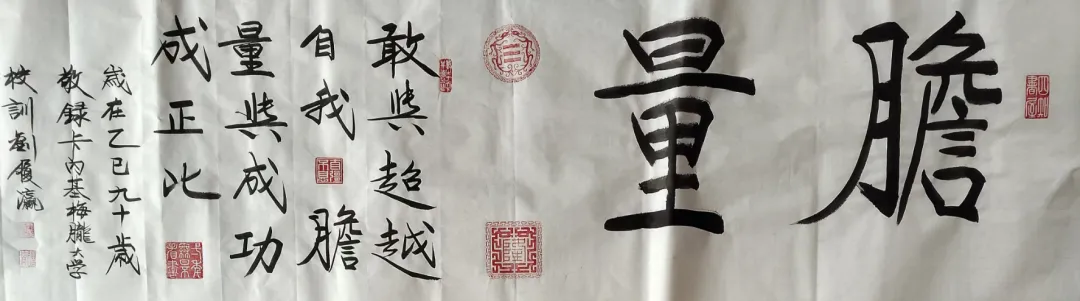 膽量
敢與超越
自我膽
量與成功
成正比
歲在乙巳九十歲
敬録卡內基梅朧大学
校訓履瀛